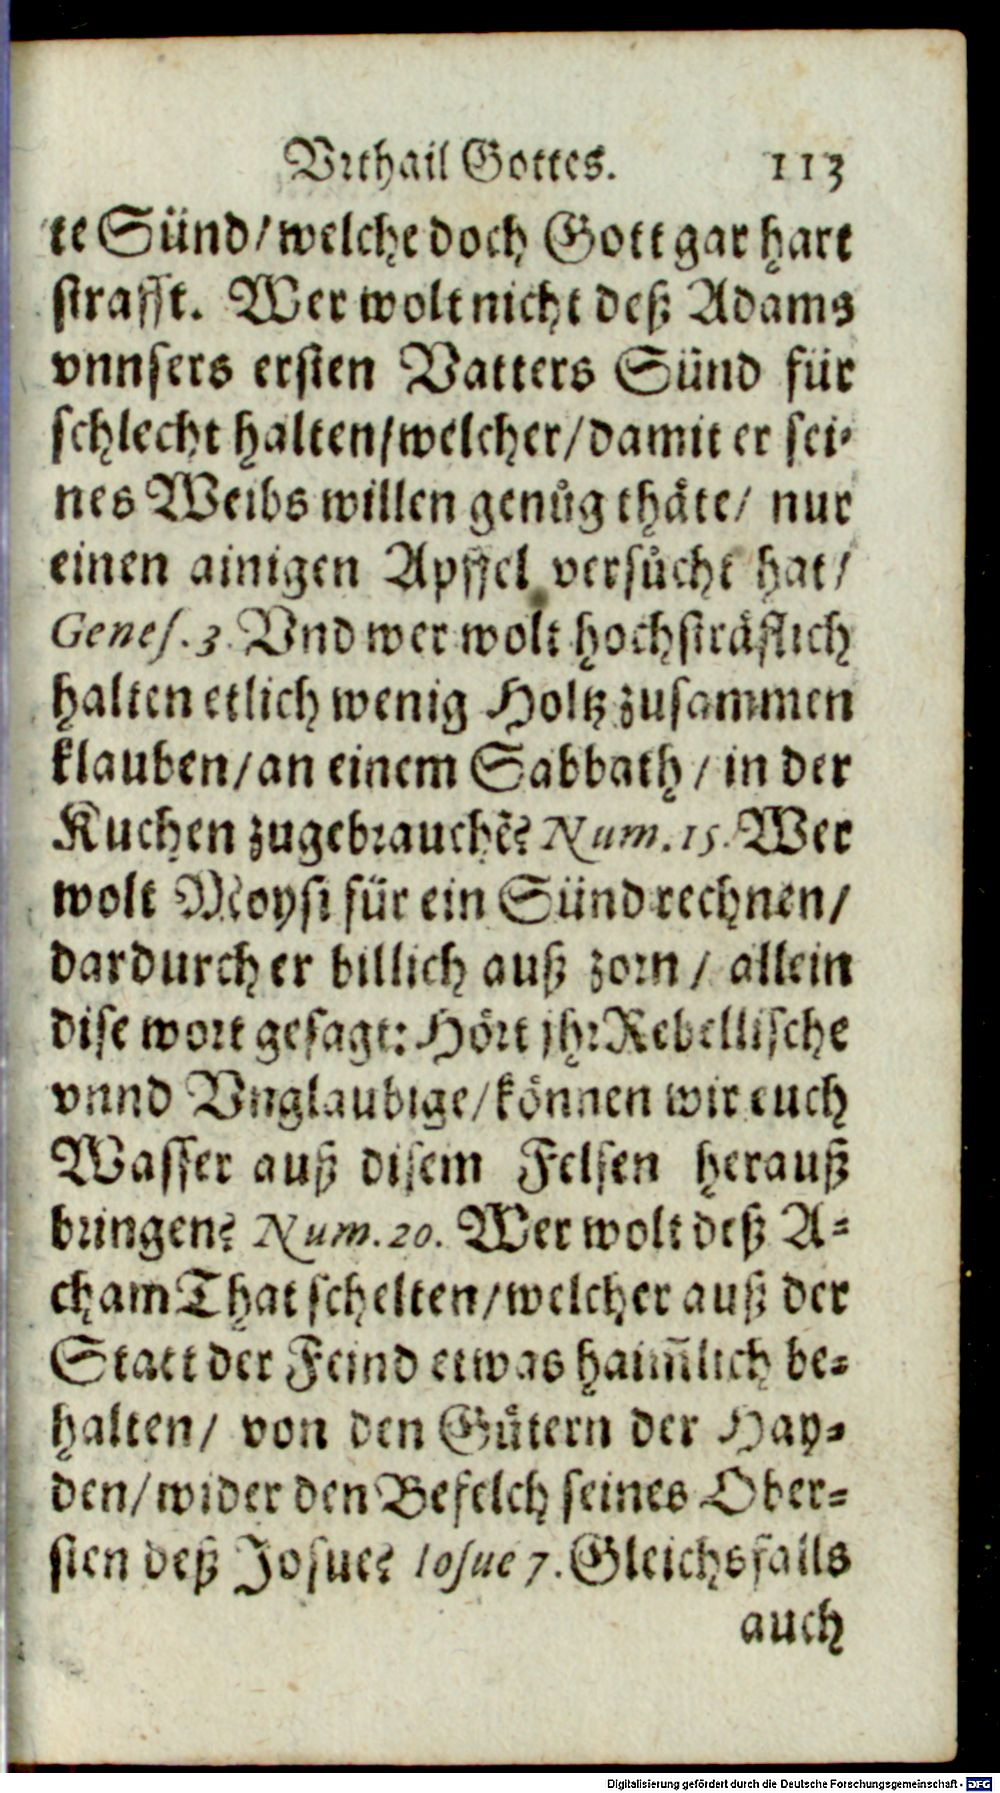 Vrthail Gottes. 113
te Sünd/welche doch Gott gar hart
strafft. Wer wolt nicht deß Adams
vnnsers ersten Vatters Sünd für
schlecht halten/welcher/damit er sei-
nes Weibs willen genůg thäte/ nur
einen ainigen Apffel versůcht hat/
Genes. 3. Vnd wer wolt hochsträflich
halten etlich wenig Holtz zusammen
klauben/an einem Sabbath/in der
Kuchen zugebrauchẽ? Num. 15. Wer
wolt Moysi für ein Sünd rechnen/
dardurch er billich auß zorn/ allein
dise wort gesagt: Hört jhr Rebellische
vnnd Vnglaubige/können wir euch
Wasser auß disem Felsen herauß
bringen? Num. 20. Wer wolt deß A-
cham That schelten/welcher auß der
Statt der Feind etwas haim̃lich be-
halten/ von den Gůtern der Hay-
den/wider den Befelch seines Ober-
sten deß Josue? Iosue 7. Gleichsfalls
auch
Digitalisierung gefördert durch die Deutsche Forschungsgemeinschaft - DFG